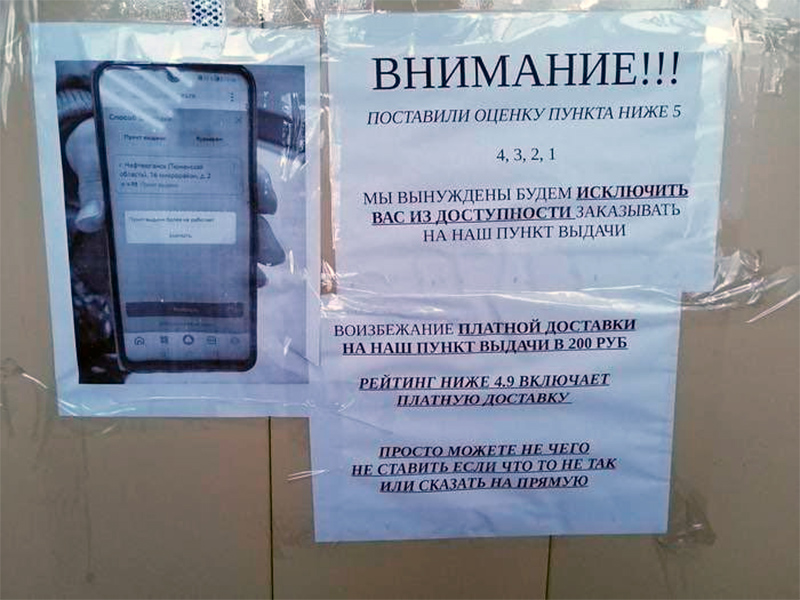 Способ
Пункт выдачи
Курьером
г. Нефтеюганск (Тюменская
область), 16 микрорайон, д. 2
Пункт выдачи
Пункт выдачи более не работает
ВНИМАНИЕ!!!
ПОСТАВИЛИ ОЦЕНКУ ПУНКТА НИЖЕ 5
4, 3, 2, 1
МЫ ВЫНУЖДЕНЫ БУДЕМ ИСКЛЮЧИТЬ
ВАС ИЗ ДОСТУПНОСТИ ЗАКАЗЫВАТЬ
НА НАШ ПУНКТ ВЫДАЧИ
ВОИЗБЕЖАНИЕ ПЛАТНОЙ ДОСТАВКИ
НА НАШ ПУНКТ ВЫДАЧИ В 200 РУБ
РЕЙТИНГ НИЖЕ 4.9 ВКЛЮЧАЕТ
ПЛАТНУЮ ДОСТАВКУ
ПРОСТО МОЖЕТЕ НЕ ЧЕГО
НЕ СТАВИТЬ ЕСЛИ ЧТО ТО НЕ ТАК
ИЛИ СКАЗАТЬ НА ПРЯМУЮ